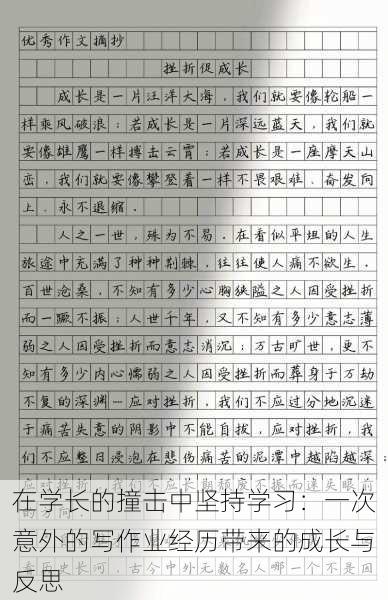 优秀作文摘抄
挫折促成长
成长是一片汪洋大海，我们就要像轮船一
样乘风破浪；若成长是一片深远蓝天，我们就
要像雄鹰一样搏击云霄；若成长是一座摩天山
峦，我们就要像攀登着一样不畏艰难、奋发向
上、永不退缩．
人之一世，殊为不易．在看似平坦的人生
旅途中充满了种种荆棘，往往使人痛不欲生．
百世沧桑，不知有多少心胸狭隘之人因受挫折
而一蹶不振；人世千年，又不知有多少意志薄
弱之人因受挫折而意志消沉；万古旷世，更不
知有多少内心懦弱之人因受挫折而葬身于万劫
不复的深渊…应对挫折，我们不应过分地沉迷
于痛苦失意的阴影中不能自拔，应对挫折，我
们不应整日浸泡在悲伤痛苦的泥潭中越陷越深；
在学长的撞击中坚持学习：一次
意外的写作业经历带来的成长与
反思
历史长河，古今中外无数名人哪一个不是因